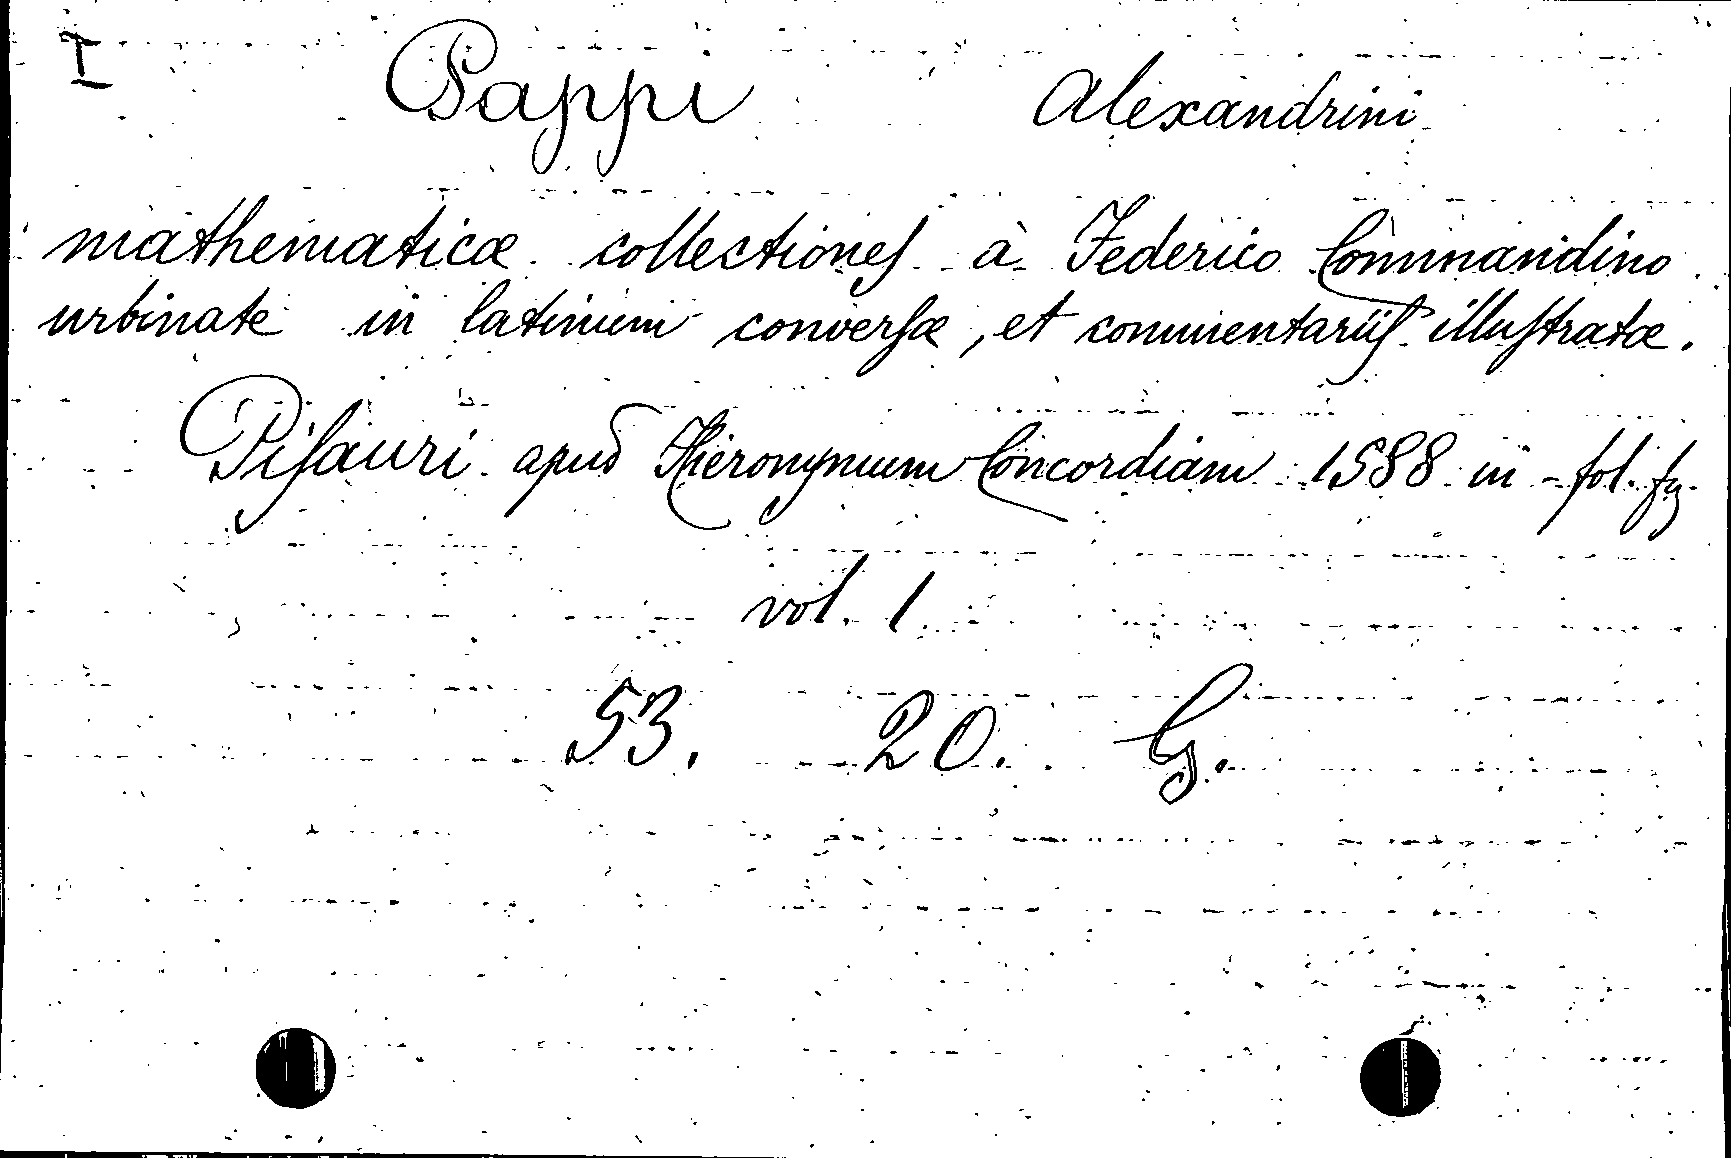 I Pappi Alexandrini
mathematicæ collectiones à Federico Commandino
urbinate in latinum conversæ, et commentariis illustratæ.
Pisauri apud Hieronymum Concordiam 1588 in-fol. fg.
vol. 1.
53. 20. G.